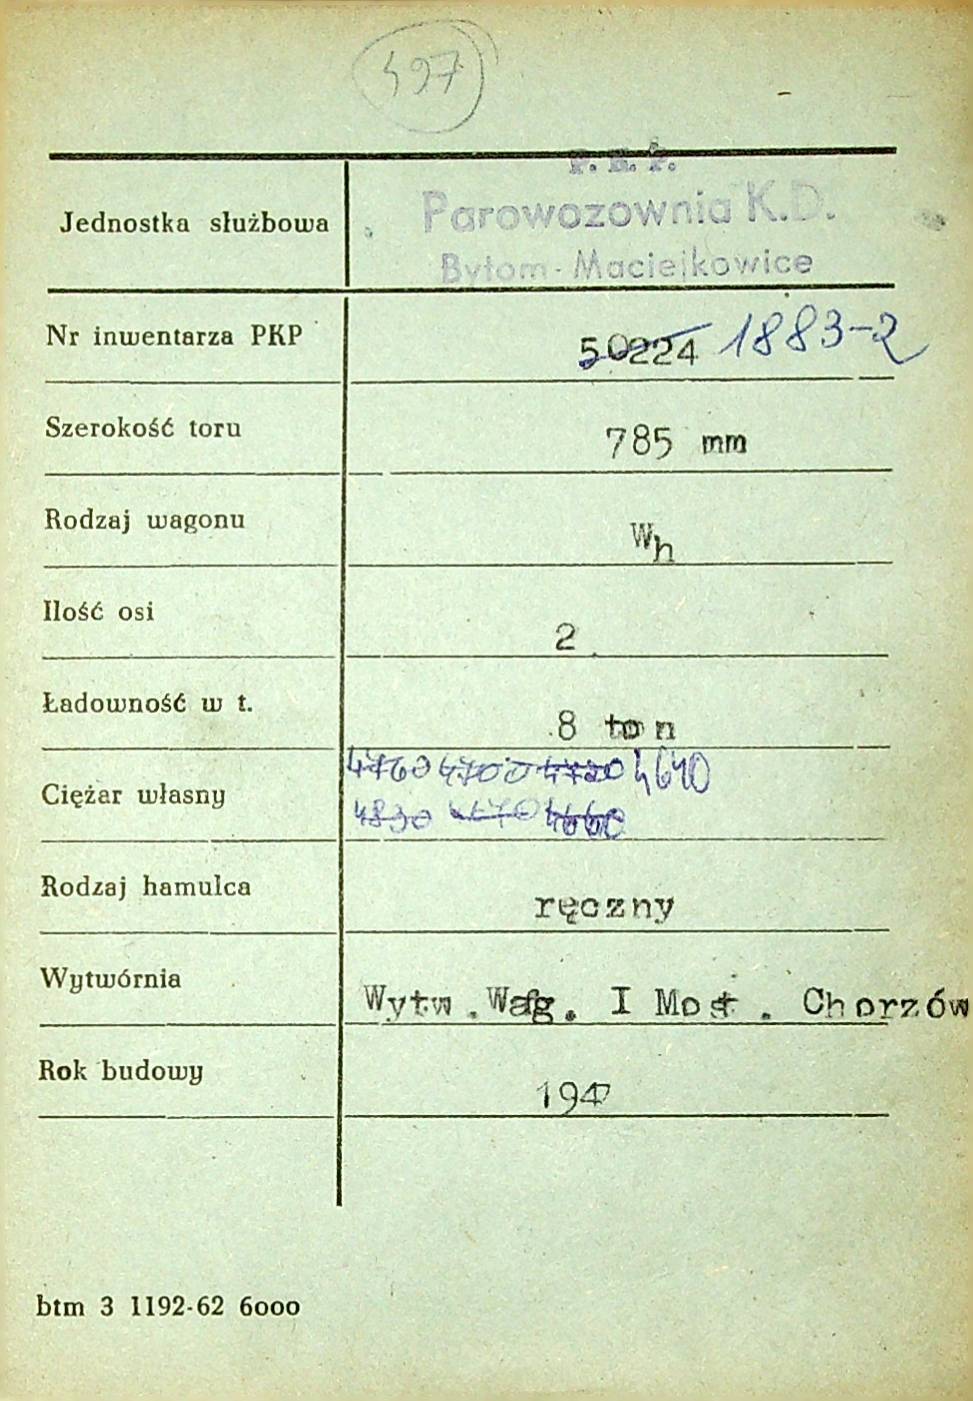 497
P. K. P.
Jednostka służbowa Parowozownia K.D.
Bytom - Maciejkowice
Nr inwentarza PKP 50224 1883-2
Szerokość toru 785 mm
Rodzaj wagonu Wh
Ilość osi 2
Ładowność w t. 8 ton
4760 4700 4720 4640
Ciężar własny
4830 4670 4660
Rodzaj hamulca ręczny
Wytwórnia Wytw. Wag. I Most. Chorzów
Rok budowy
btm 3 1192-62 6000